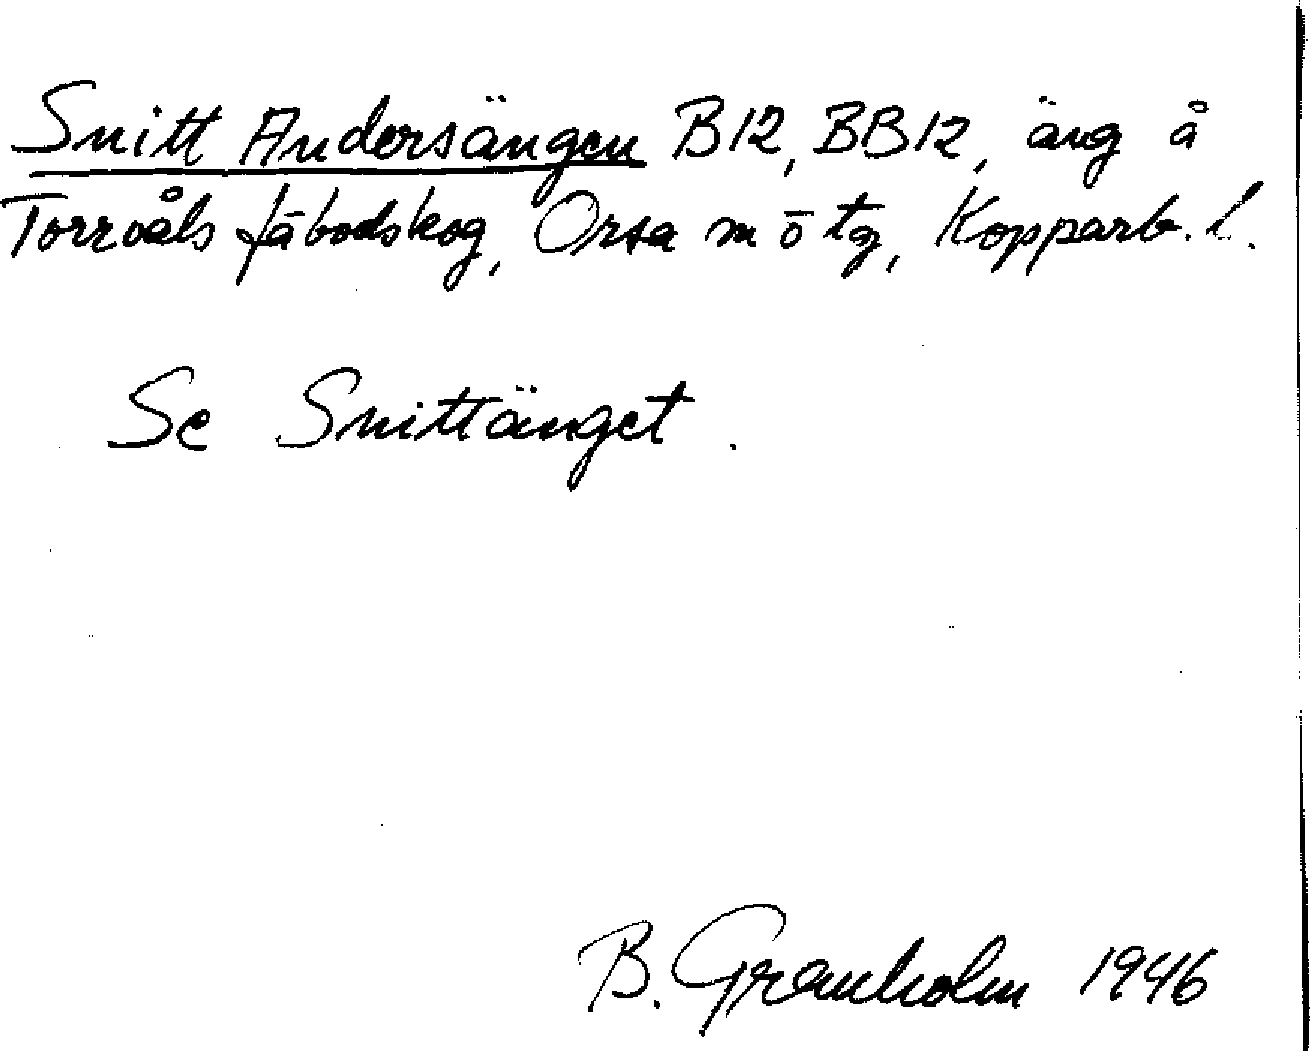 Snitt Andersängen B12, BB12, äng å
Torrvåls fäbodskog, Orsa m ō tg, Kopparb. l.
Se Snittänget.
B. Granholm 1946